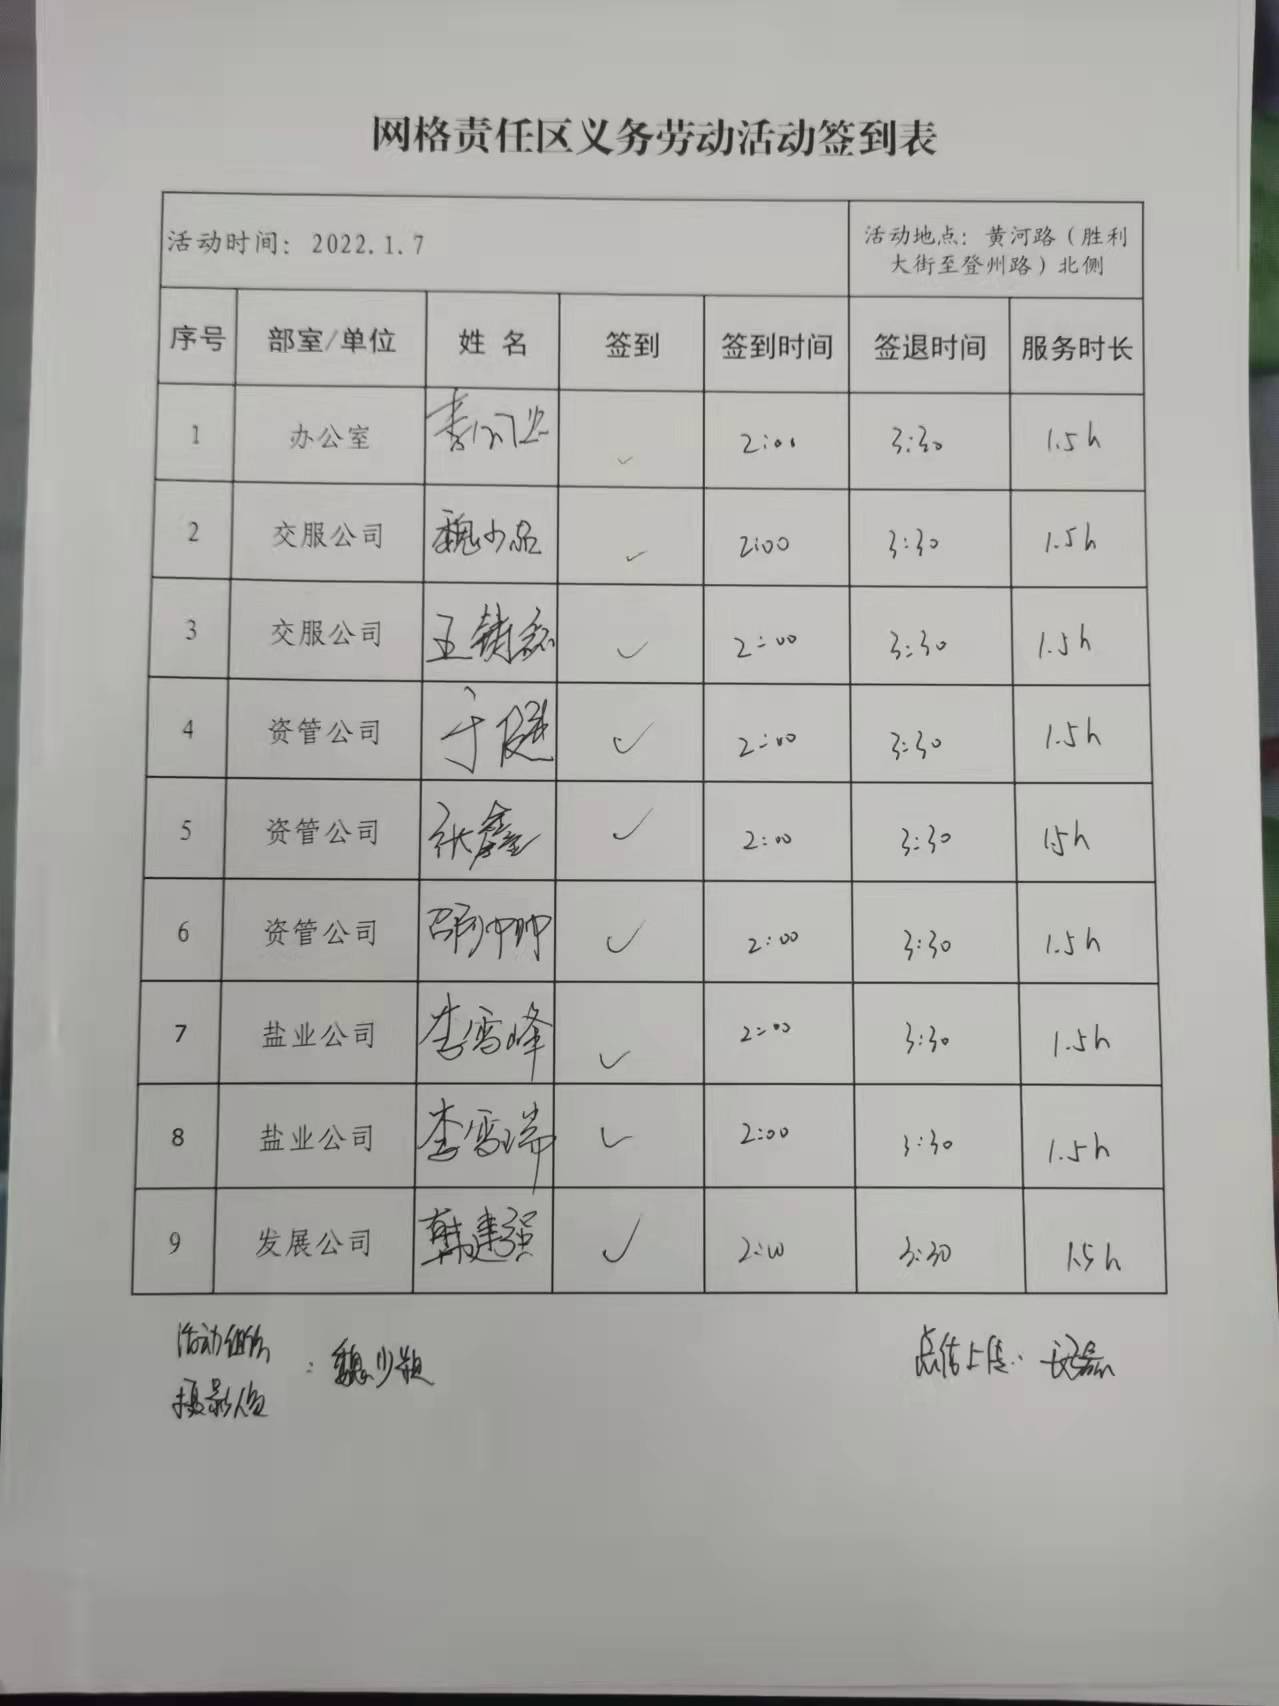 网格责任区义务劳动活动签到表
活动时间：2022.1.7
活动地点：黄河路（胜利
大街至登州路）北侧
序号 部室/单位 姓 名 签到 签到时间 签退时间 服务时长
1 办公室 ✓ 2:00 3:30 1.5h
2 交服公司 魏少品 ✓ 2:00 3:30 1.5h
3 交服公司 ✓ 2:00 3:30 1.5h
4 资管公司 于健 ✓ 2:00 3:30 1.5h
5 资管公司 张鑫 ✓ 2:00 3:30 15h
6 资管公司 ✓ 2:00 3:30 1.5h
7 盐业公司 李雪峰 ✓ 2:00 3:30 1.5h
8 盐业公司 李雪瑞 ✓ 2:00 3:30 1.5h
9 发展公司 韩建强 ✓ 2:00 3:30 1.5h
活动组织
摄影人员
：魏少
上传：